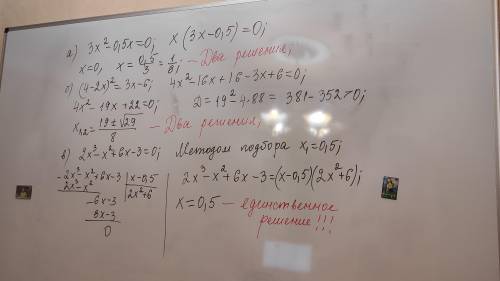 а) 3x²-0,5x=0; x(3x-0,5)=0;
x=0, x=0,5/3=1/6; - Два решения,
б) (4-2x)²=3x-6; 4x²-16x+16-3x+6=0;
4x²-19x+22=0; D=19²-4·88=381-352>0;
x₁,₂=(19±√29)/8 - Два решения,
в) 2x³-x²+6x-3=0; Методом подбора x₁=0,5;
-2x³-x²+6x-3 | x-0,5
2x³-x² | 2x²+6
-6x-3
6x-3
0
2x³-x²+6x-3=(x-0,5)(2x²+6);
x=0,5 - единственное
решение!!!